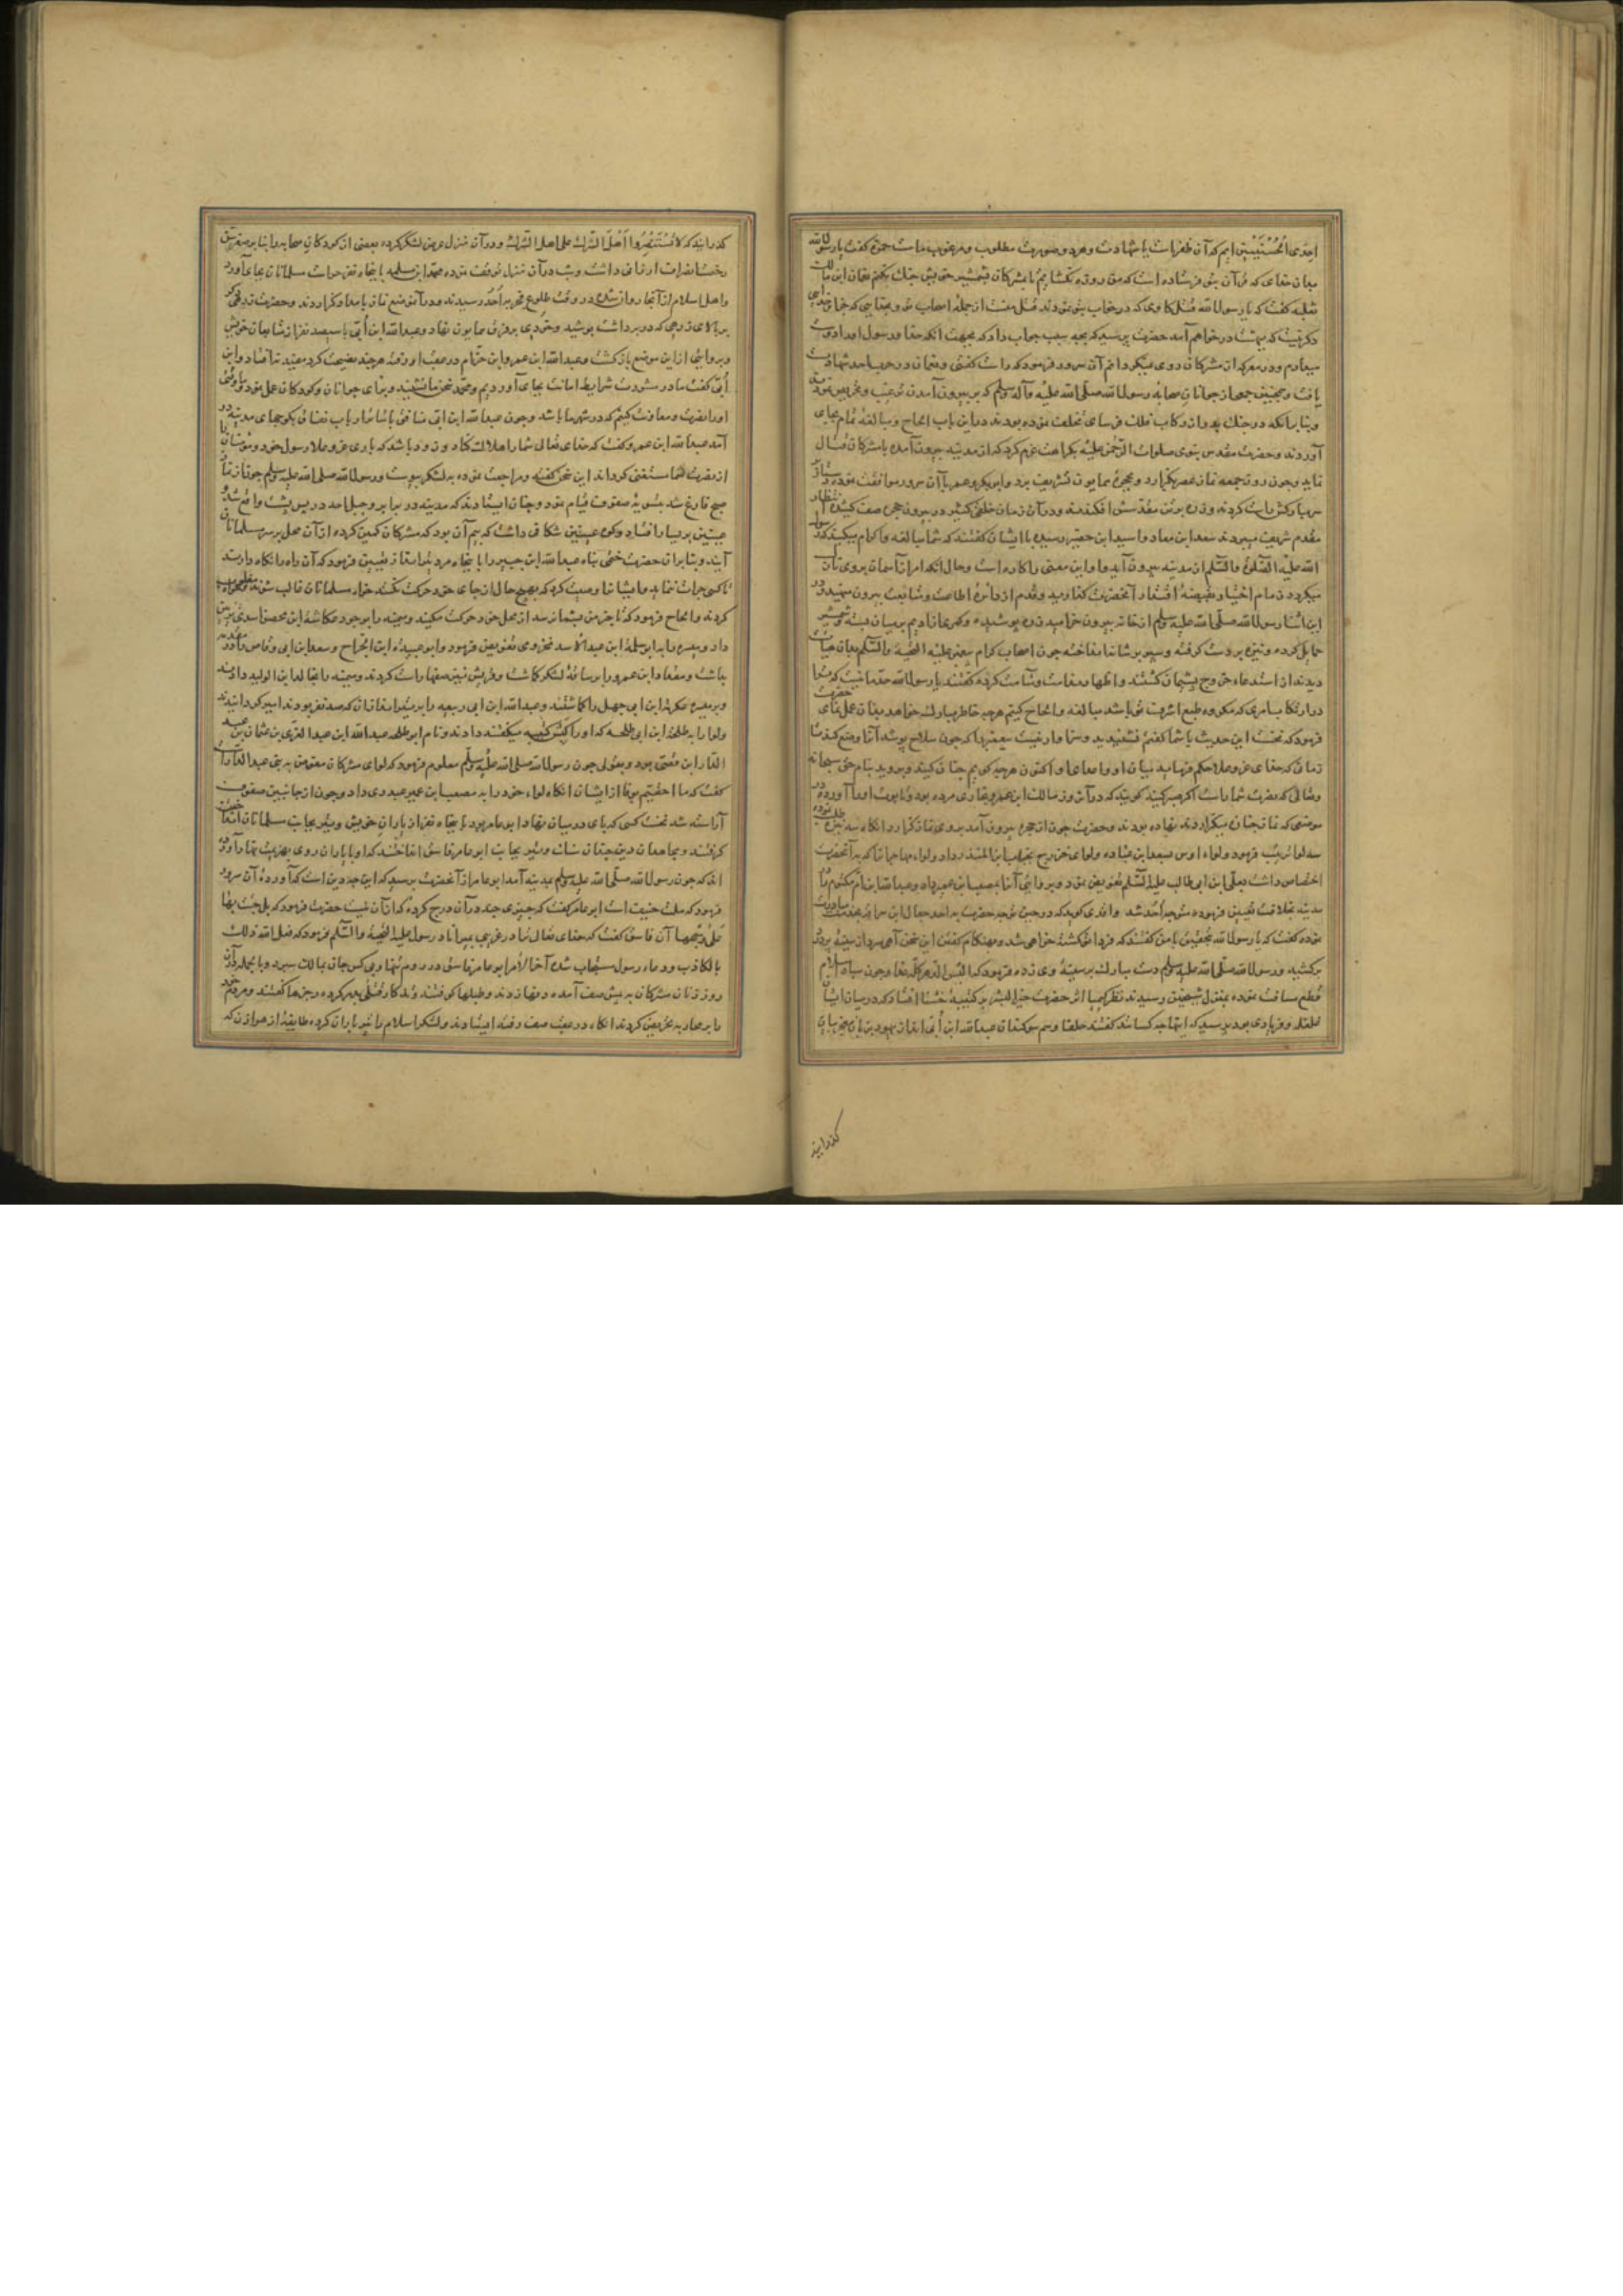 احدی الحسنیین ایم که آن ظفر است یا شهادت و هر دو صورت مطلوب و مرغوب ماست حمزه گفت یا رسول الله
بدان خدای که قرآن بتو فرستاده است که من روزه نگشایم تا بمشرکان بشمشیر خویش جنگ نکنم نعمان ابن مالک
ثعلبه گفت که یا رسول الله قتل گاوی که در خواب بتو نمودند قتل منست از جمله اصحاب تو و بخدایی که جز او خدایی
دگر نیست که ببهشت درخواهم آمد حضرت پرسید که بچه سبب جواب داد که بجهت آنکه خدا و رسول او را دوست
میدارم و در معرکه از مشرکان روی نمیگردانم آن سرور فرمود که راست گفتی و نعمان در حرب احد شهادت
یافت و همچنین جمعی از جوانان صحابه رسول الله صلی الله علیه و آله وسلم که بر بیرون آمدن ترغیب و تحریص نمودند
و بنا بر آنکه در جنگ بدر از رکاب فلک فرسای تخلف نموده بودند در این باب الحاح و مبالغه تمام بجای
آوردند و حضرت مقدس نبوی صلوات الرحمن علیه بکراهت عزم کرد که از مدینه بیرون آمده با مشرکان قتال
نماید و چون روز جمعه نماز عصر بگزارد و بحجره همایون تشریف برد و ابوبکر و عمر با آن سرور موافقت نموده دستار
بر سر مبارکش راست کردند و زره بر تن مقدسش افکندند و در آن زمان خلقی کثیر در بیرون حجره صف کشیده انتظار
مقدم شریف میبردند سعد ابن معاذ و اسید ابن حضیر رسیده با ایشان گفتند که شما مبالغه و ابرام میکنید که رسول
الله علیه الصلوة والسلم از مدینه بیرون آید و او این معنی را کاره است و حال آنکه امر از آسمان بروی نازل
میگردد زمام اختیار بقبضه اقتدار آنحضرت گذارید و قدم از دائره اطاعت و متابعت بیرون منهید در
این اثنا رسول الله صلی الله علیه وسلم از خانه بیرون خرامید زره پوشیده و کمری از ادیم بر میان بسته و شمشیر
حمایل کرده و نیزه بر دست گرفته و سپر بر شانه انداخته چون اصحاب کرام پیغمبر علیه التحیه والسلم بدان هیأت
دیدند از استدعاء خروج پشیمان گشتند و اظهار ندامت کرده گفتند یا رسول الله حد ما نیست که ترا
در ارتکاب امری که مکروه طبع اشرف تو باشد مبالغه و الحاح کنیم هرچه خاطر مبارکت خواهد بدان عمل نمای حضرت
فرمود که نخست این حدیث با شما گفتم نشنیدید و سزاوار نیست پیغمبر را که چون سلاح پوشد آنرا وضع کند تا
زمانی که خدای عز و علا حکم فرماید میان او و اعدای او اکنون هرچه گویم چنان کنید و بروید بنام حق سبحانه
و تعالی که نصرت شما راست اگر صبر کنید گویند که در آن روز مالک ابن عمرو نجاری مرده بود و تابوت او را آورده در
موضعی که نماز جنازه میگزاردند نهاده بودند و حضرت چون از حجره بیرون آمد بر وی نماز گزارد آنگاه سه نیزه طلب نموده
سه لوا ترتیب فرمود و لواء اوس بسعد ابن عباده و لوای خزرج بحباب ابن المنذر داد و لواء مهاجران را که به آنحضرت
اختصاص داشت بعلی ابن ابی طالب علیه السلم تفویض نمود و بروایتی آنرا بمصعب ابن عمیر داد و عبدالله ابن ام مکتوم را
بمدینه بخلافت تعیین فرموده متوجه احد شد واقدی گوید که در حین توجه حضرت به احد جعال ابن سراقه بخدمت مبادرت
نموده گفت که یا رسول الله بتحقیق با من گفتند که فردا تو کشته خواهی شد و بهنگام گفتن این سخن آهی سرد از سینه پر درد
برکشید و رسول الله صلی الله علیه وسلم دست مبارک بر سینه وی زده فرمود که الیس الدهر کله غدا و چون سپاه اسلام
قطع مسافت نموده بمنزل شیخین رسیدند نظر کیمیا اثر حضرت خیر البشر بر کتیبه خشنا افتاد که در میان ایشان
غلغله و فریادی بود پرسید که اینها چه کسانند گفتند حلفا و هم سوگندان عبدالله ابن ابی اند از یهود بر زبان معجز بیان
گذرانید
گذرانید که لا تستنصروا اهل الشرک علی اهل الشرک و در آن منزل عرض لشکر کرده بعضی از کودکان صحابه را بنا بر صغر سن
رخصت انصراف ارزانی داشت و شب در آن منزل توقف نموده محمد ابن مسلمه با پنجاه نفر حراست مسلمانان بجای آورد
و اهل اسلام از آنجا روان شده در وقت طلوع فجر به احد رسیدند و در آن موضع نماز بامداد گزاردند و حضرت زرهی دیگر
بر بالای زرهی که در بر داشت بپوشید و خودی بر فرق همایون نهاد و عبدالله ابن ابی با سیصد نفر از متابعان خویش
و بروایتی از این موضع بازگشت و عبدالله ابن عمرو ابن حزام در عقب او رفته هرچند نصیحت کرد مفید نیفتاد و ابن
ابی گفت ما در مشورت شرایط امانت بجای آوردیم و محمد سخن ما نشنید و برای جوانان و کودکان عمل نمود و ما وقتی
او را نصرت و معاونت کنیم که در شهر ما باشد و چون عبدالله ابن ابی منافق با سایر ارباب نفاق بکوچهای مدینه در
آمد عبدالله ابن عمرو گفت که خدای تعالی شما را هلاک کناد و زود باشد که باری عز و علا رسول خود و مؤمنان را
از نصرت شما مستغنی گرداند این سخن گفته و مراجعت نموده به لشکر پیوست و رسول الله صلی الله علیه وسلم چون از نماز
صبح فارغ شد بتسویه صفوف قیام نمود و چنان ایستادند که مدینه در برابر و جبل احد در پس پشت واقع شد و
عینین بر یسار افتاد و کوه عینین شکافی داشت که بیم آن بود که مشرکان کمین کرده از آن محل بر سر مسلمانان
آیند و بنا بر آن حضرت ختمی پناه عبدالله ابن جبیر را با پنجاه مرد تیرانداز تعیین فرمود که آن راه را نگاه دارند
تا کسی جرأت ننماید و ایشان را وصیت کرد که بهیچ حال از جای خود حرکت نکنند خواه مسلمانان غالب شوند و خواه مغلوب
کردند و الحاح فرمود که تا خبر من بشما نرسد از محل خود حرکت مکنید و میمنه را بوجود عکاشه ابن محصن اسدی زینت
داد و میسره را به ابو سلمه ابن عبدالاسد مخزومی تفویض فرمود و ابو عبیده ابن الجراح و سعد ابن ابی وقاص را مقدمه
بداشت و مقداد ابن عمرو را بر ساقه لشکر گماشت و قریش نیز صفها راست کردند و میمنه را بخالد ابن الولید دادند
و بر میسره عکرمه ابن ابی جهل را گماشتند و عبدالله ابن ابی ربیعه را بر تیراندازان که صد نفر بودند امیر گردانیدند
و لوا را به طلحه ابن ابی طلحه که او را کبش کتیبه میگفتند دادند و نام ابو طلحه عبدالله ابن عبد العزی بن عثمان بن عبد
الدار ابن قصی بود و بقولی چون رسول الله صلی الله علیه وسلم معلوم فرمود که لوای مشرکان مفوض به بنی عبد الدار است
گفت که ما احقیم بوفا از ایشان آنگاه لواء خود را به مصعب ابن عمیر عبدری داد و چون از جانبین صفوف
آراسته شد نخست کسی که پای در میان نهاد ابو عامر بود با پنجاه نفر از یاران خویش و تیر بجانب مسلمانان انداختن
گرفتند و مجاهدان دین چندان سنگ و تیر بجانب ابو عامر فاسق انداختند که او با یاران روی بهزیمت نهاد آورده
اند که چون رسول الله صلی الله علیه وسلم بمدینه آمد ابو عامر از آنحضرت پرسید که این چه دین است که آورده آن سرور
فرمود که ملت حنیف است ابو عامر گفت که چیزی چند در آن درج کرده که از آن نیست حضرت فرمود که بل جئت بها
علی وجهها آن فاسق گفت که خدای تعالی ترا در غریبی بمیراناد رسول علیه التحیه والسلم فرمود که فعل الله ذلک
بالکاذب و دعاء رسول مستجاب شده آخر الامر ابو عامر فاسق در روم تنها و بی کس جان بمالک سپرد و بالجمله در آن
روز زنان مشرکان به پیش صف آمده دفها زدند و طبلها کوفتند و ذکر قتلی بدر کرده رجزها گفتند و مردم خود
را بر محاربه تحریض کردند آنگاه در عقب صف رفته ایستادند و لشکر اسلام را تیرباران کرده طایفه از هوازن که